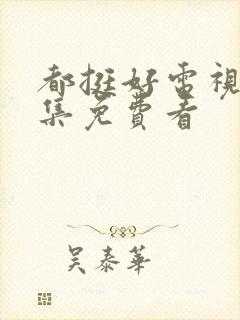 都挺好電視
集免費看
吴泰華